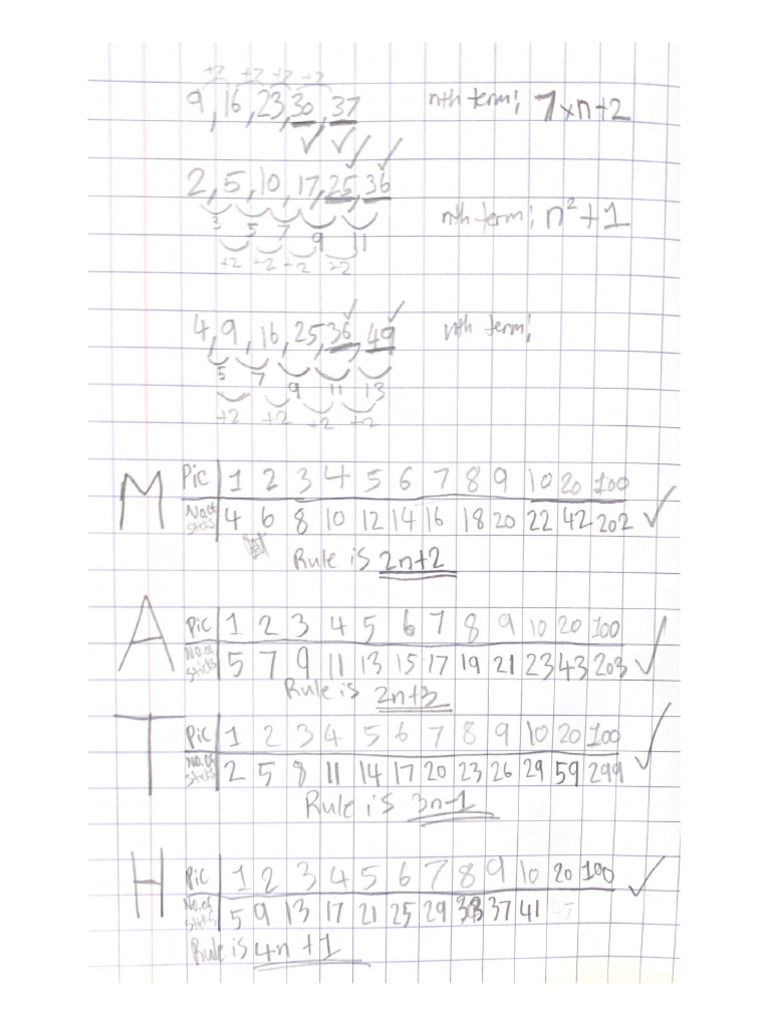 +7 +7 +7 +7
9, 16, 23, 30, 37 nth term; 7×n+2
2, 5, 10, 17, 25, 36 nth term; n²+1
3 5 7 9 11
+2 +2 +2 +2
4, 9, 16, 25, 36, 49 nth term;
5 7 9 11 13
+2 +2 +2 +2
M
Pic 1 2 3 4 5 6 7 8 9 10 20 100
No. of sticks 4 6 8 10 12 14 16 18 20 22 42 202
Rule is 2n+2
A
Pic 1 2 3 4 5 6 7 8 9 10 20 100
No. of sticks 5 7 9 11 13 15 17 19 21 23 43 203
Rule is 2n+3
T
Pic 1 2 3 4 5 6 7 8 9 10 20 100
No. of sticks 2 5 8 11 14 17 20 23 26 29 59 299
Rule is 3n-1
H
Pic 1 2 3 4 5 6 7 8 9 10 20 100
No. of sticks 5 9 13 17 21 25 29 33 37 41 45
Rule is 4n+1